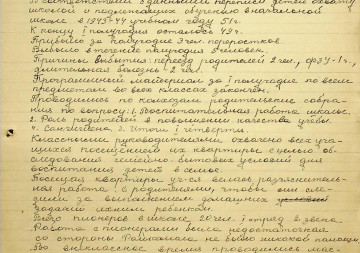 В соответствии с данными переписи детей охвату
школой и подлежащих обучению в начальной
школе в 1943-44 учебном году 51 ч.
К концу I полугодия осталось 43 ч.
Прибыло за I полугодие 3 чел. переростков
Выбыло в течение полугодия 8 человек.
Причины выбытия: переезд родителей 2 чел., ФЗУ-1 ч.,
длительная болезнь 2 чел.
Программный материал за I полугодие по всем
предметам во всех классах закончен.
Проводились по колхозам родительские собра-
ния по вопросу: 1. Воспитательная работа школы.
2. Роль родителей в повышении качества учёбы.
4. Сангигиена, 3. Итоги I четверти.
Классными руководителями охвачено всех уча-
щихся посещением их квартиры с целью об-
следования семейно-бытовых условий для
воспитания детей в семье.
Посещая квартиры уч-ся велась разъяснитель-
ная работа с родителями, чтобы они сле-
дили за выполнением домашних
заданий их ребёнком.
Всего пионеров в школе 20 чел. 1 отряд 2 звена
Работа с пионерами была недостаточная
со стороны Райкомола не было никакой помощи
Во внеклассное время проводились мас-